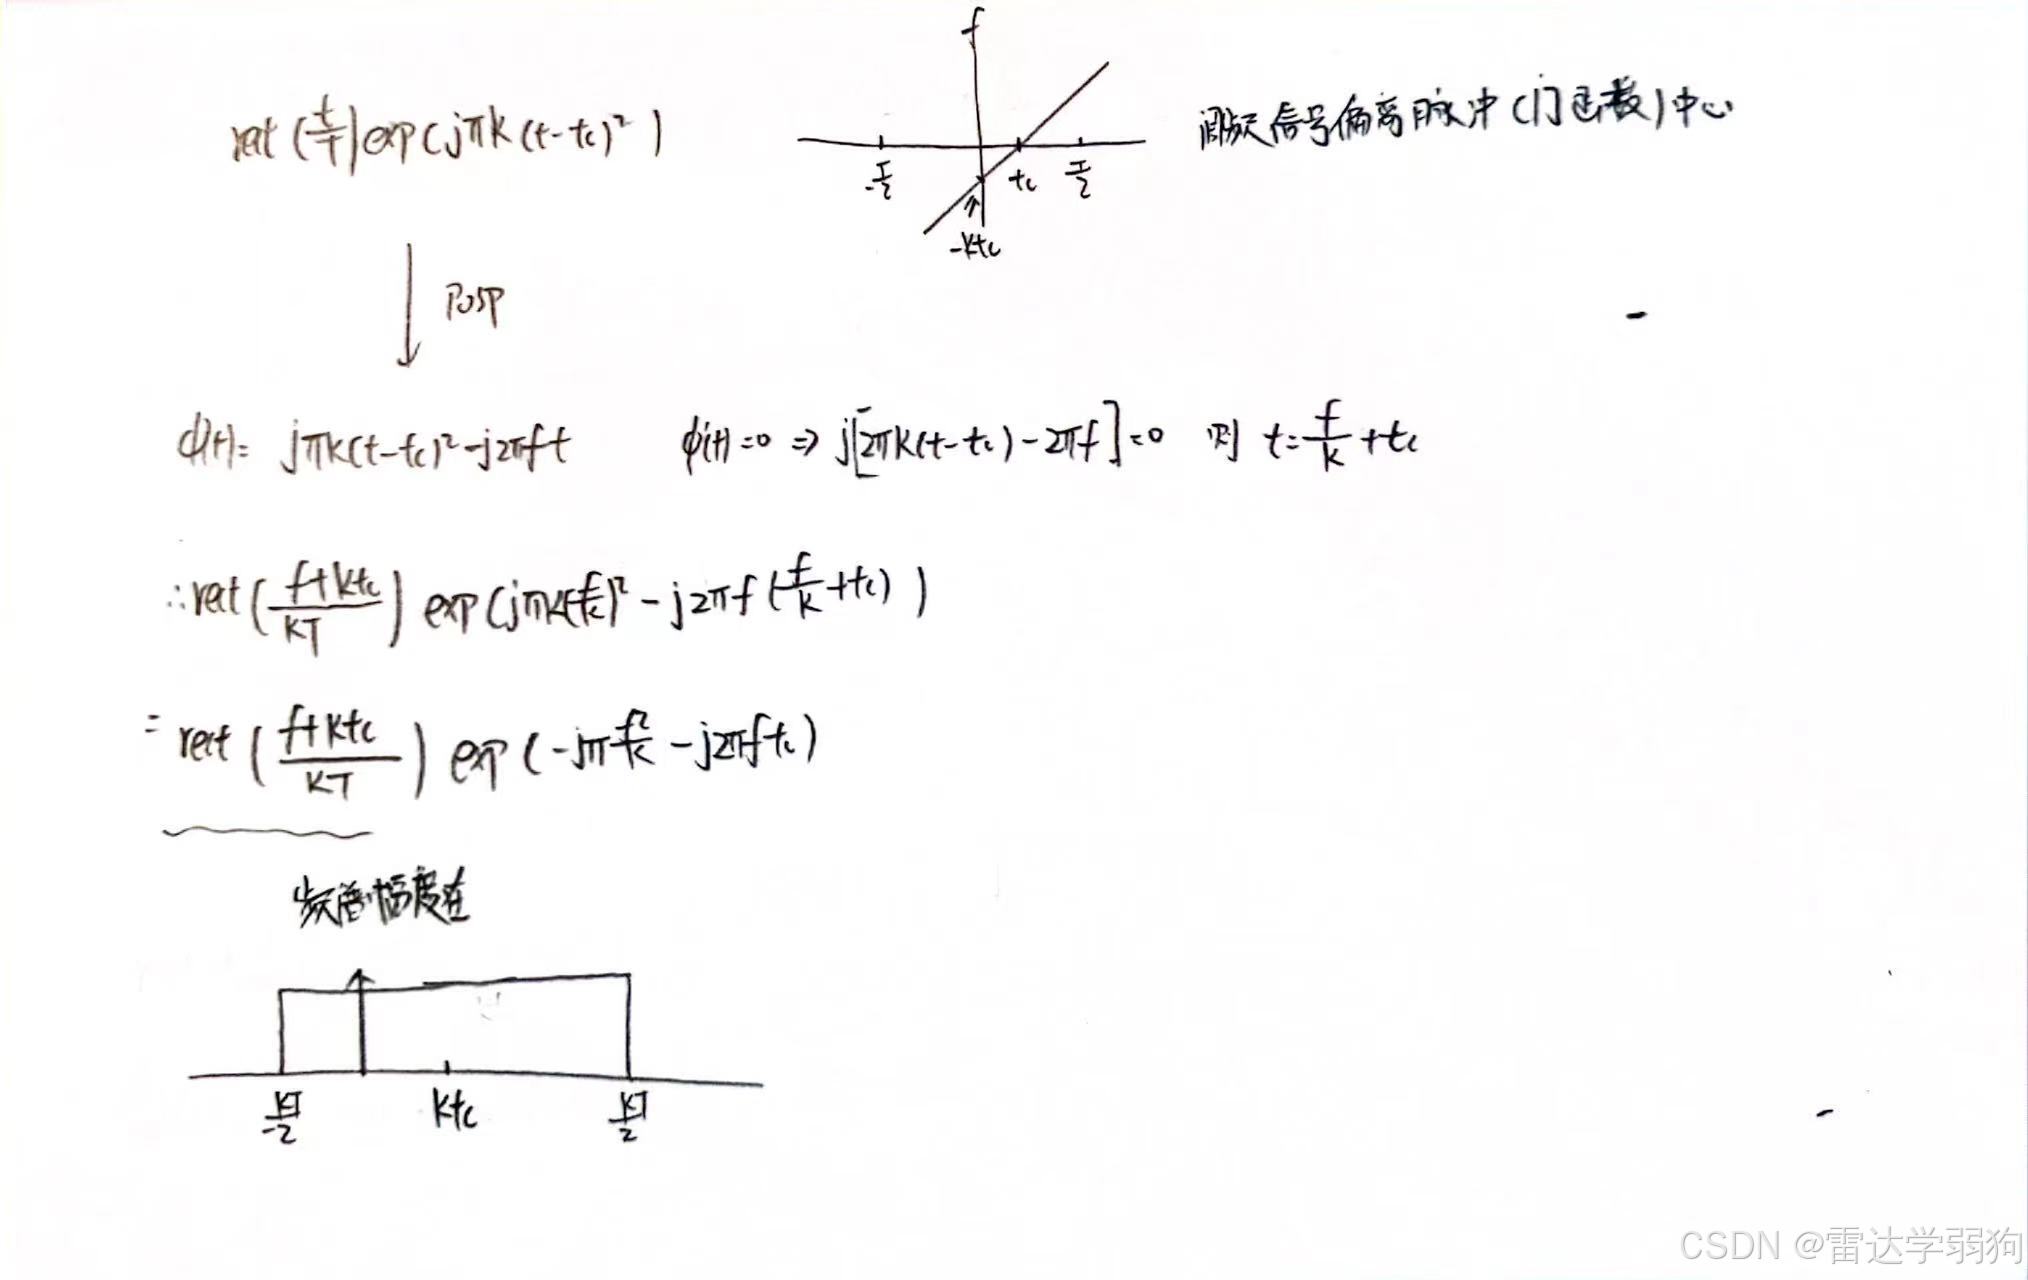 f
rect(t/T)exp(jπk(t-tc)²)
调频信号偏离脉冲(门函数)中心
-T/2 tc T/2
-ktc
POSP
φ(t)= jπk(t-tc)²-j2πft φ'(t)=0 ⇒ j[2πk(t-tc)-2πf]=0 则 t=f/k+tc
∴rect((f+ktc)/kT) exp(jπk(f/k)²-j2πf(f/k+tc))
=rect((f+ktc)/kT) exp(-jπf²/k-j2πftc)
频谱幅度在
-kT/2 ktc kT/2
CSDN @雷达学弱狗